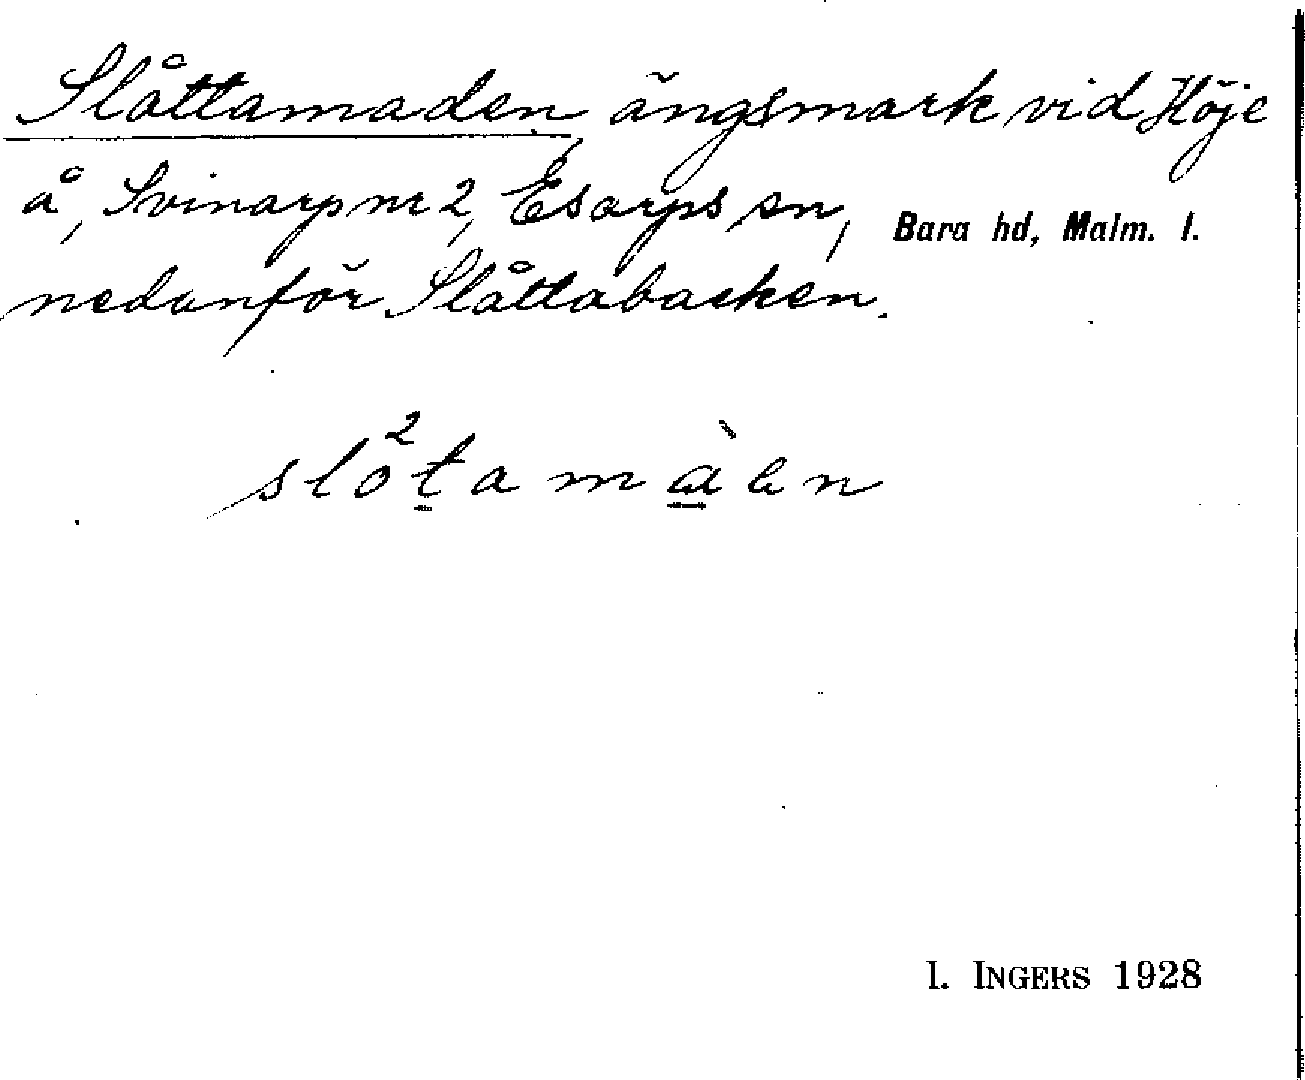 Slåttamaden, ängsmark vid Höje
å, Svinarp nr 2, Esarps sn, Bara hd, Malm. l.
nedanför Slåttabacken.
slo²t̲amà̲en
I. INGERS 1928